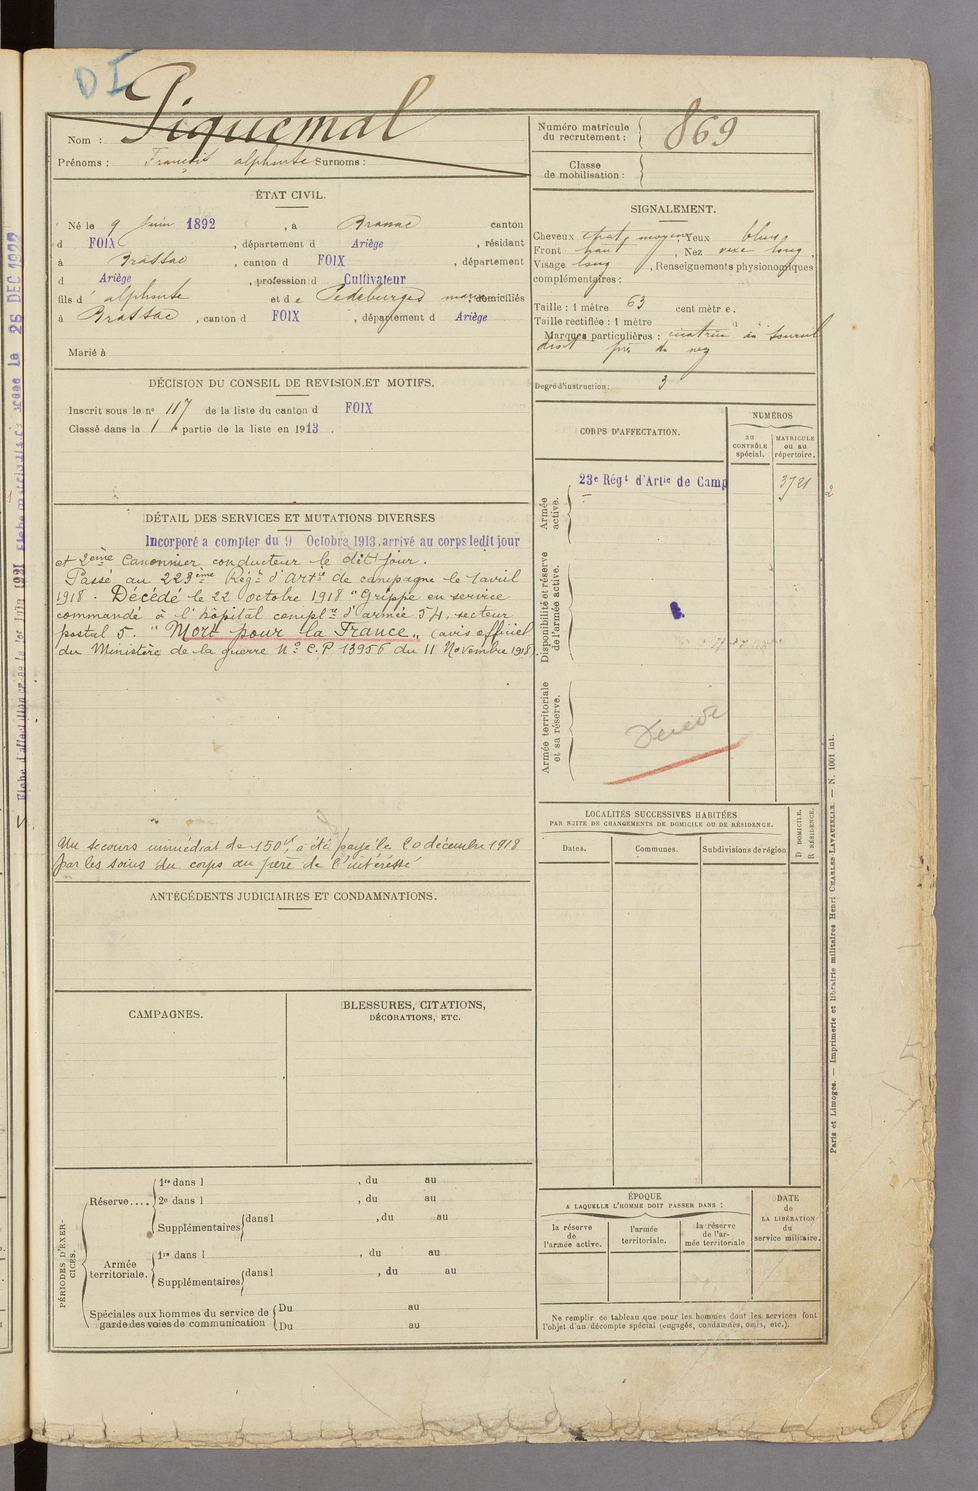 DI
Nom : Piquemal
Prénoms : François alphonse Surnoms :
Numéro matricule du recrutement : 869
Classe de mobilisation :
ÉTAT CIVIL.
Né le 9 juin 1892, à Brassac canton
d FOIX, département d Ariège, résidant
à Brassac, canton d FOIX, département
d Ariège, profession d Cultivateur
fils d' alphonse et de Pedeburges marie domiciliés
à Brassac, canton d FOIX, département d Ariège
Marié à
SIGNALEMENT.
Cheveux chat. moyens, Yeux bleus
Front haut, Nez vexe long,
Visage long, Renseignements physionomiques
complémentaires :
Taille : 1 mètre 63 cent mètre.
Taille rectifiée : 1 mètre
Marques particulières : cicatrice au sourcil
droit près du nez
Degré d'instruction : 3
DÉCISION DU CONSEIL DE REVISION ET MOTIFS.
Inscrit sous le nº 117 de la liste du canton d FOIX
Classé dans la 1 partie de la liste en 1913.
CORPS D'AFFECTATION.
NUMÉROS
au CONTRÔLE spécial.
MATRICULE ou au répertoire.
Armée active.
23e Régt d'Artie de Camp
3721
Disponibilité et réserve de l'armée active.
Armée territoriale et sa réserve.
DÉTAIL DES SERVICES ET MUTATIONS DIVERSES
Incorporé a compter du 9 Octobre 1913, arrivé au corps ledit jour
et 2ème Canonnier conducteur le dit jour.
Passé au 223ème Régt d'Artie de campagne le 1 avril
1918. Décédé le 22 octobre 1918 "Grippe en service
commandé à l'hôpital complre d'armée 54, secteur
postal 5. "Mort pour la France" (avis officiel
du Ministère de la guerre Nº C.P 13956 du 11 Novembre 1918).
Un secours immédiat de 150f a été payé le 20 décembre 1918
par les soins du corps au père de l'intéressé
LOCALITÉS SUCCESSIVES HABITÉES
PAR SUITE DE CHANGEMENTS DE DOMICILE OU DE RÉSIDENCE.
Dates. Communes. Subdivisions de région
D DOMICILE.
R RÉSIDENCE.
ANTÉCÉDENTS JUDICIAIRES ET CONDAMNATIONS.
CAMPAGNES.
BLESSURES, CITATIONS,
DÉCORATIONS, ETC.
PÉRIODES D'EXERCICES.
Réserve.... 1re dans l , du au
2e dans l , du au
Supplémentaires dans l , du au
Armée territoriale. 1re dans l , du au
Supplémentaires dans l , du au
Spéciales aux hommes du service de garde des voies de communication
Du au
Du au
ÉPOQUE
A LAQUELLE L'HOMME DOIT PASSER DANS :
la réserve de l'armée active.
l'armée territoriale.
la réserve de l'armée territoriale
DATE de LA LIBÉRATION du service militaire.
Ne remplir ce tableau que pour les hommes dont les services font
l'objet d'un décompte spécial (engagés, condamnés, omis, etc.).
Paris et Limoges. — Imprimerie et librairie militaires Henri CHARLES-LAVAUZELLE. — N. 1001 int.